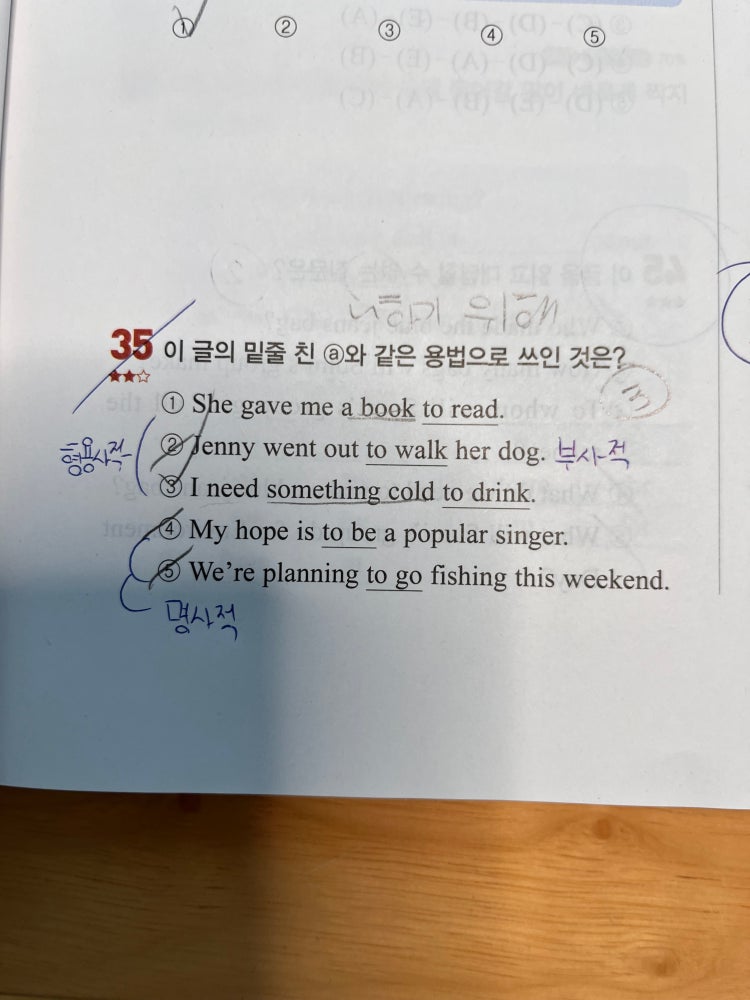 ① ② ③ ④ ⑤
~하기 위해
35 이 글의 밑줄 친 ⓐ와 같은 용법으로 쓰인 것은?
★★☆
① She gave me a book to read.
② Jenny went out to walk her dog. 부사적
형용사적
③ I need something cold to drink.
④ My hope is to be a popular singer.
⑤ We're planning to go fishing this weekend.
명사적